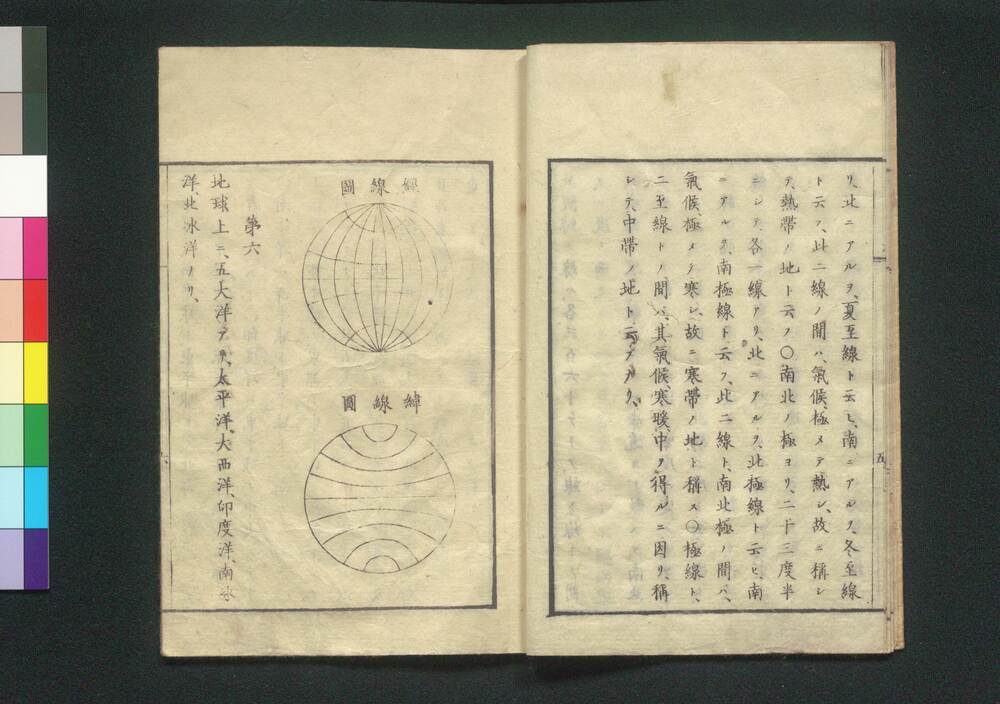 リ、北ニアルヲ、夏至線ト云ヒ、南ニアルヲ、冬至線
ト云フ、此二線ノ間ハ、氣候、極メテ熱シ、故ニ稱シ
テ、熱帶ノ地ト云フ〇南北ノ極ヨリ、二十三度半
ニシテ、各一線アリ、北ニアルヲ、北極線ト云ヒ、南
ニアルヲ、南極線ト云フ、此二線ト、南北極ノ間ハ、
氣候、極メテ寒シ、故ニ寒帶ノ地ト稱ス〇極線ト、
二至線トノ間ハ、其氣候、寒暖、中ヲ得ルニ因リ、稱
シテ、中帶ノ地ト云フナリ、
五
經線圖
緯線圖
第六
地球上ニ、五大洋アリ、太平洋、大西洋、印度洋、南氷
洋、北氷洋ノリ、